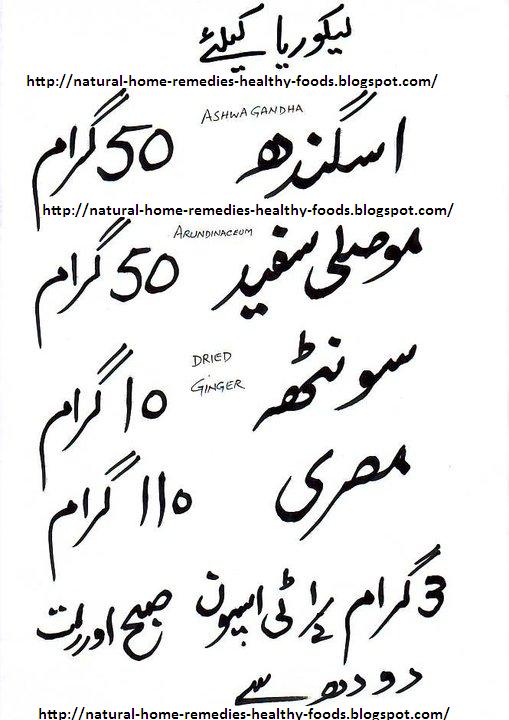 لیکوریا کیلئے
http://natural-home-remedies-healthy-foods.blogspot.com/
ASHWAGANDHA
اسگندھ 50 گرام
http://natural-home-remedies-healthy-foods.blogspot.com/
ARUNDINACEUM
موصلی سفید 50 گرام
DRIED
GINGER
سونٹھ 10 گرام
مصری 110 گرام
3 گرام 1/2 ٹی اسپون صبح اور رات
دودھ سے
http://natural-home-remedies-healthy-foods.blogspot.com/